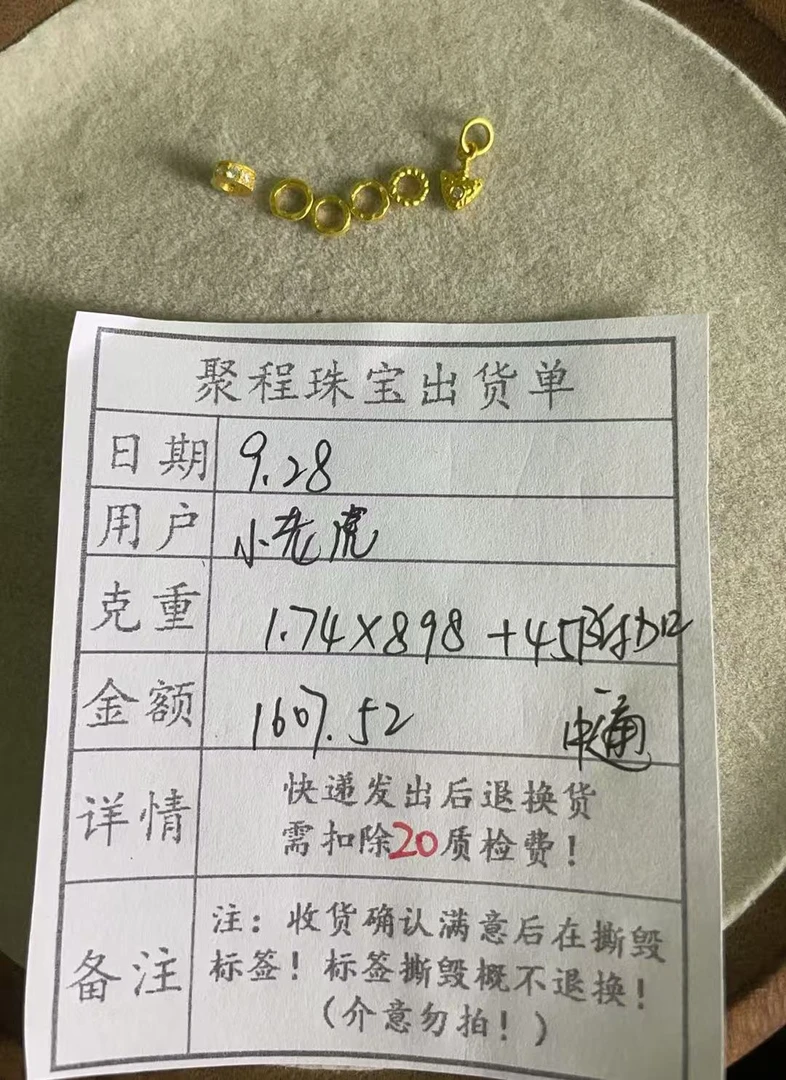 聚程珠宝出货单
日期 9.28
用户 小老虎
克重 1.74×898 +45
金额 1607.52 中通
详情 快递发出后退换货
需扣除20质检费！
备注 注：收货确认满意后在撕毁
标签！标签撕毁概不退换！
（介意勿拍！）